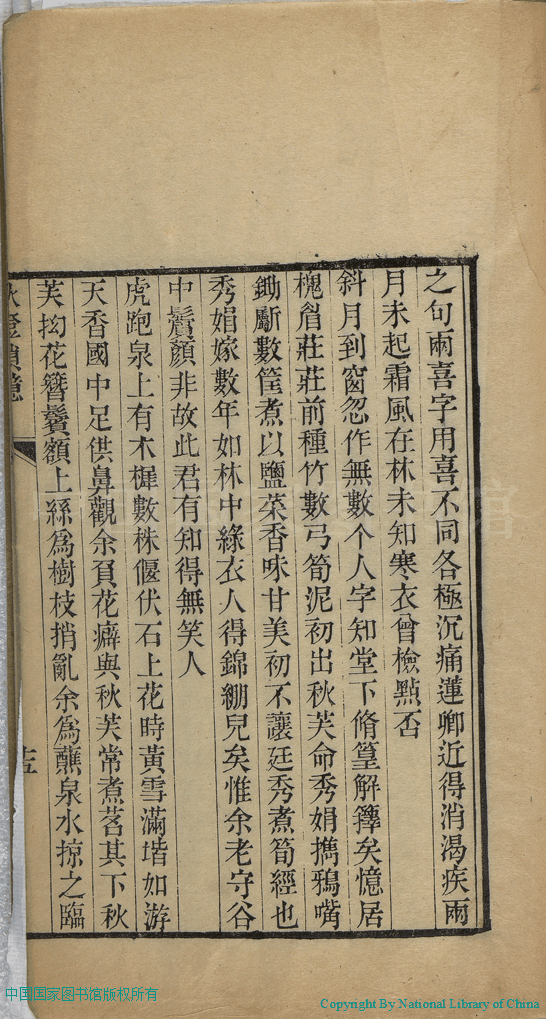 之句兩喜字用喜不同各極沉痛蓮卿近得消渴疾兩
月未起霜風在林未知寒衣曾檢點否
斜月到窗忽作無數个人字知堂下脩篁解籜矣憶居
槐眉莊莊前種竹數弓筍泥初出秋芙命秀娟攜鴉嘴
鋤斸數筐煮以鹽菜香味甘美初不讓廷秀煮筍經也
秀娟嫁數年如林中綠衣人得錦綳兒矣惟余老守谷
中鬢顏非故此君有知得無笑人
虎跑泉上有木樨數株偃伏石上花時黃雪滿堦如游
天香國中足供鼻觀余負花癖與秋芙常煮茗其下秋
芙抝花簪鬢額上絲為樹枝捎亂余為蘸泉水掠之臨
秋鐙瑣憶
十五
中国国家图书馆版权所有
Copyright By National Library of China